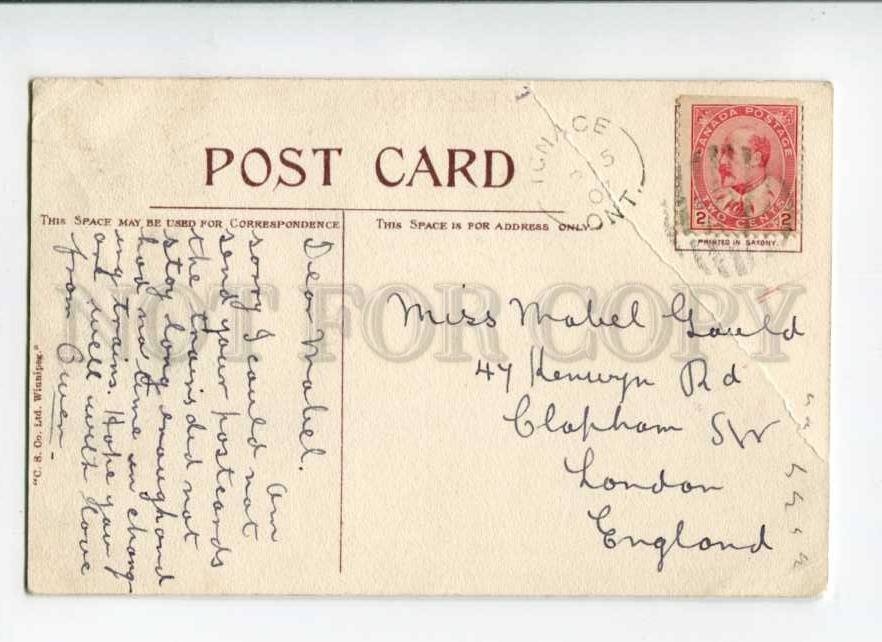 POST CARD
THIS SPACE MAY BE USED FOR CORRESPONDENCE
THIS SPACE IS FOR ADDRESS ONLY
IGNACE
5
ONT.
CANADA POSTAGE
2 TWO CENTS 2
PRINTED IN SAXONY.
Dear Mabel.
Am
sorry I could not
send your postcards
the trains did not
stay long enough and
had no time in chang-
ing trains. Hope you
are well with love
from Owen -
Miss Mabel Gould
47 Kenwyn Rd
Clapham SW
London
England
"C. S. Co. Ltd. Winnipeg."
NOT FOR COPY